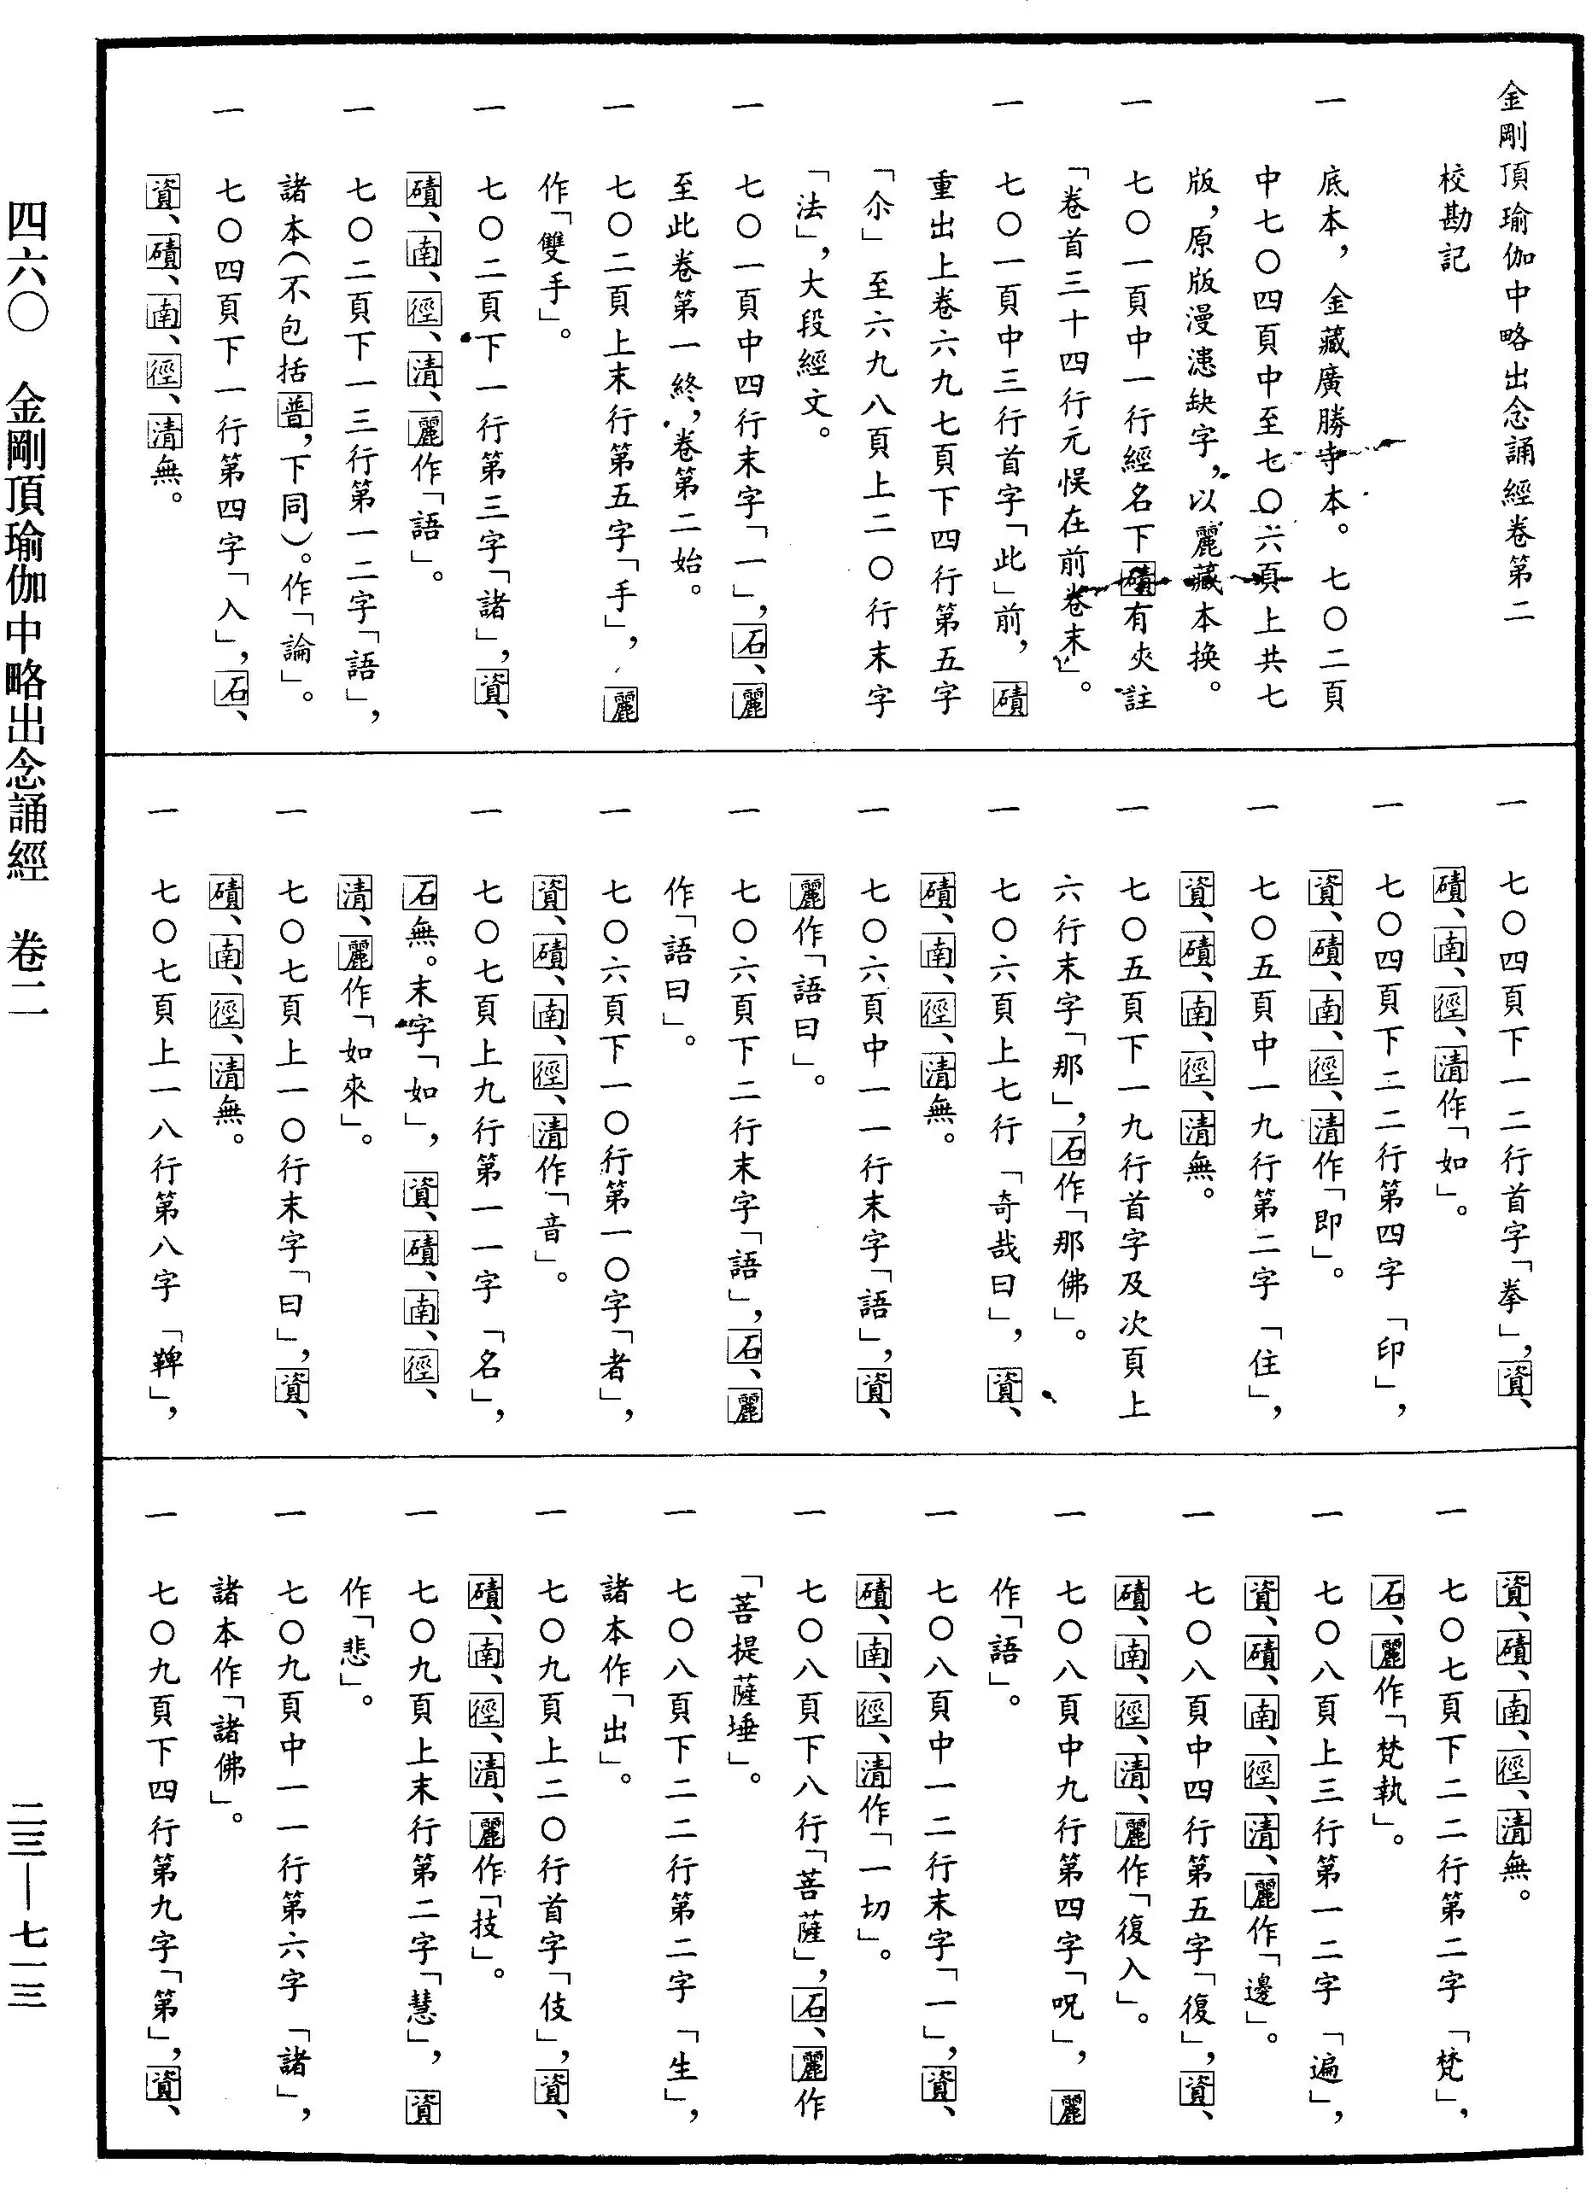 金剛頂瑜伽中略出念誦經卷第二
校勘記
一 底本，金藏廣勝寺本。七〇二頁
中七〇四頁中至七〇六頁上共七
版，原版漫漶缺字，以麗藏本換。
一 七〇一頁中一行經名下磧有夾註
「卷首三十四行元悮在前卷末」。
一 七〇一頁中三行首字「此」前，磧
重出上卷六九七頁下四行第五字
「尒」至六九八頁上二〇行末字
「法」，大段經文。
一 七〇一頁中四行末字「一」，石、麗
至此卷第一終，卷第二始。
一 七〇二頁上末行第五字「手」，麗
作「雙手」。
一 七〇二頁下一行第三字「諸」，資、
磧、南、徑、清、麗作「語」。
一 七〇二頁下一三行第一二字「語」，
諸本（不包括普，下同）。作「論」。
一 七〇四頁下一行第四字「入」，石、
資、磧、南、徑、清無。
一 七〇四頁下一二行首字「拳」，資、
磧、南、徑、清作「如」。
一 七〇四頁下二二行第四字「印」，
資、磧、南、徑、清作「即」。
一 七〇五頁中一九行第二字「住」，
資、磧、南、徑、清無。
一 七〇五頁下一九行首字及次頁上
六行末字「那」，石作「那佛」。
一 七〇六頁上七行「奇哉曰」，資、
磧、南、徑、清無。
一 七〇六頁中一一行末字「語」，資、
麗作「語曰」。
一 七〇六頁下二行末字「語」，石、麗
作「語曰」。
一 七〇六頁下一〇行第一〇字「者」，
資、磧、南、徑、清作「音」。
一 七〇七頁上九行第一一字「名」，
石無。末字「如」，資、磧、南、徑、
清、麗作「如來」。
一 七〇七頁上一〇行末字「曰」，資、
磧、南、徑、清無。
一 七〇七頁上一八行第八字「鞞」，
資、磧、南、徑、清無。
一 七〇七頁下二二行第二字「梵」，
石、麗作「梵執」。
一 七〇八頁上三行第一二字「遍」，
資、磧、南、徑、清、麗作「邊」。
一 七〇八頁中四行第五字「復」，資、
磧、南、徑、清、麗作「復入」。
一 七〇八頁中九行第四字「呪」，麗
作「語」。
一 七〇八頁中一二行末字「一」，資、
磧、南、徑、清作「一切」。
一 七〇八頁下八行「菩薩」，石、麗作
「菩提薩埵」。
一 七〇八頁下二二行第二字「生」，
諸本作「出」。
一 七〇九頁上二〇行首字「伎」，資、
磧、南、徑、清、麗作「技」。
一 七〇九頁上末行第二字「慧」，資
作「悲」。
一 七〇九頁中一一行第六字「諸」，
諸本作「諸佛」。
一 七〇九頁下四行第九字「第」，資、
四六〇 金剛頂瑜伽中略出念誦經 卷二
二三—七一三